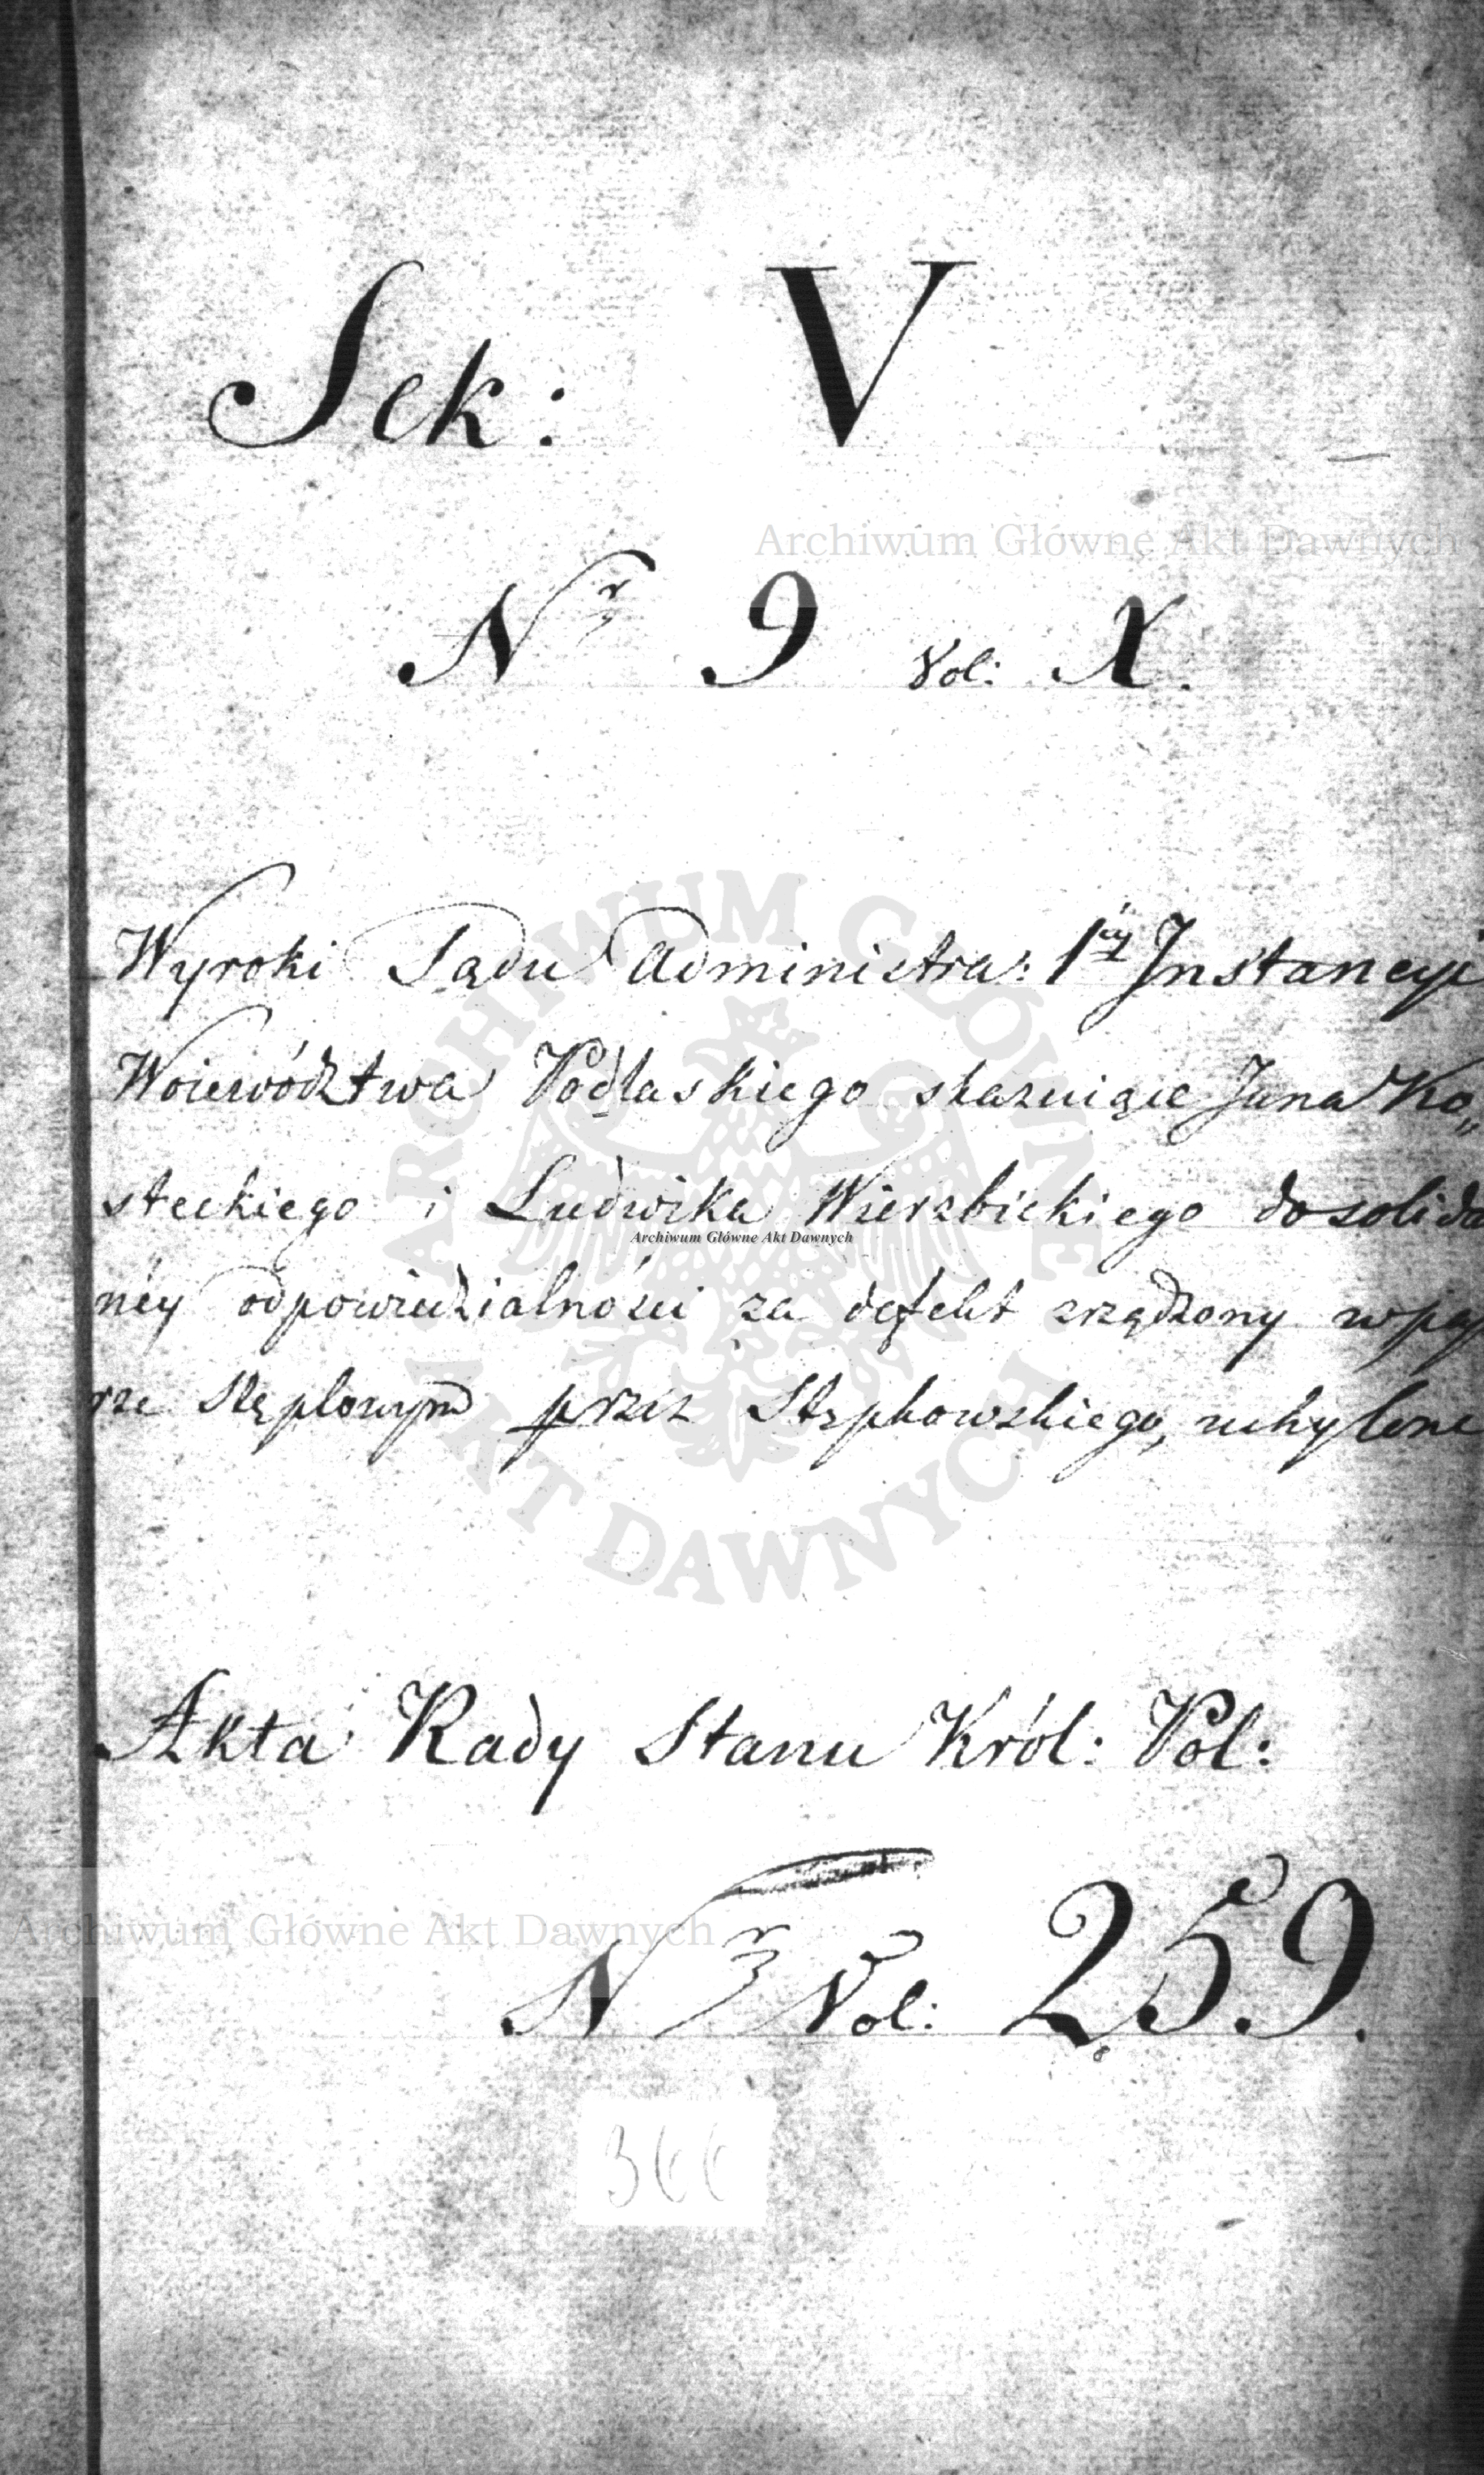 Sek: V
Archiwum Główne Akt Dawnych
Nr 9 Vol: X.
Wyroki Sądu Administra: 1éy Instancyi
Woiewództwa Podlaskiego skazuiące Jana Ko„
steckiego i Ludwika Wierzbickiego do solida
Archiwum Główne Akt Dawnych
néy odpowiedzialności za defekt zrządzony w pa
rze stęplowym przez Stępkowskiego, uchylone
ARCHIWUM GŁÓWNE AKT DAWNYCH
Akta Rady Stanu Król: Pol:
Archiwum Główne Akt Dawnych
Nr Vol: 259.
366